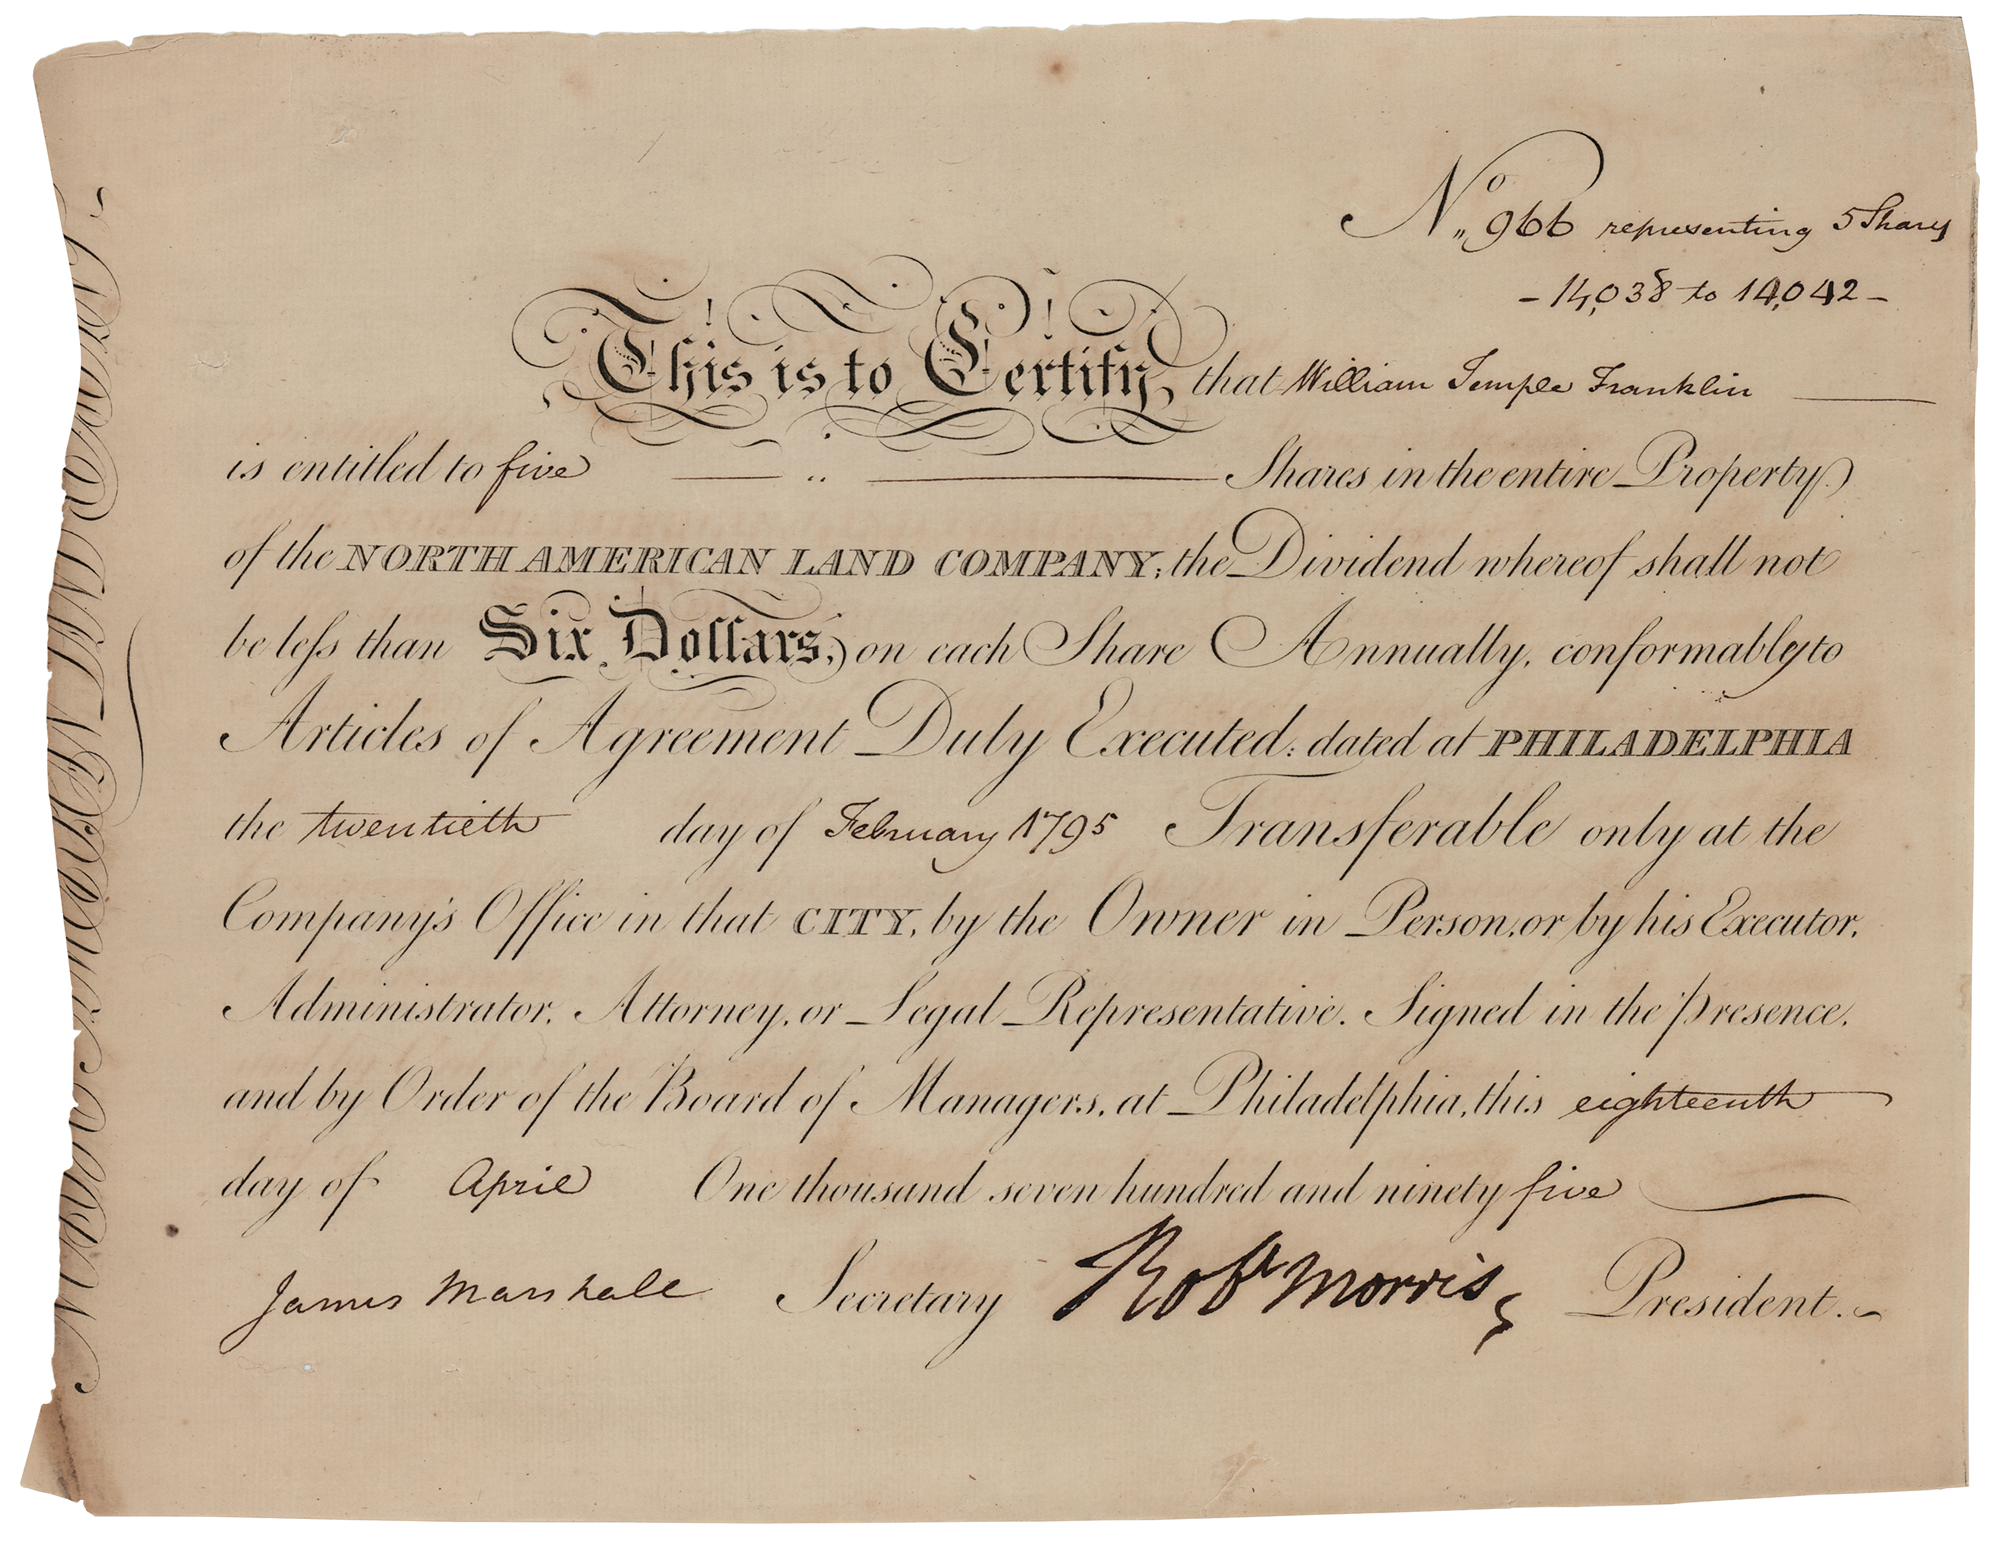 No 966 representing 5 Shares
- 14,038 to 14,042 -
This is to Certify, that William Temple Franklin
is entitled to five Shares in the entire Property
of the NORTH AMERICAN LAND COMPANY; the Dividend whereof shall not
be leſs than Six Dollars, on each Share Annually, conformably to
Articles of Agreement Duly Executed: dated at PHILADELPHIA
the twentieth day of February 1795 Transferable only at the
Company's Office in that CITY, by the Owner in Person, or by his Executor,
Administrator, Attorney, or Legal Representative. Signed in the presence,
and by Order of the Board of Managers, at Philadelphia, this eighteenth
day of April One thousand seven hundred and ninety five
James Marshall Secretary Robt Morris President.